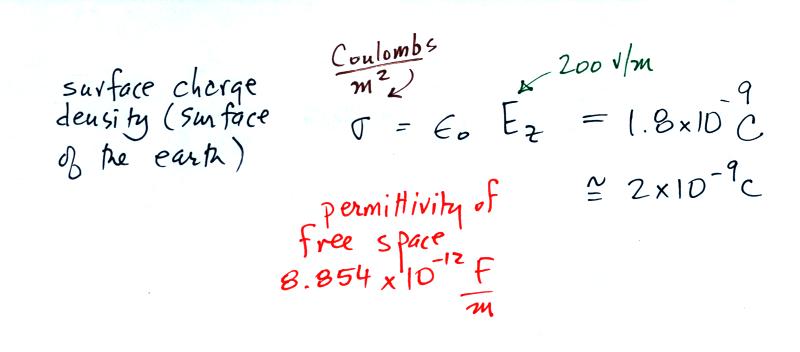 surface charge
density (surface
of the earth)
Coulombs
m²
200 V/m
σ = ϵ₀ E_z = 1.8×10⁻⁹ C
≅ 2×10⁻⁹ C
permittivity of
free space
8.854 × 10⁻¹² F
m